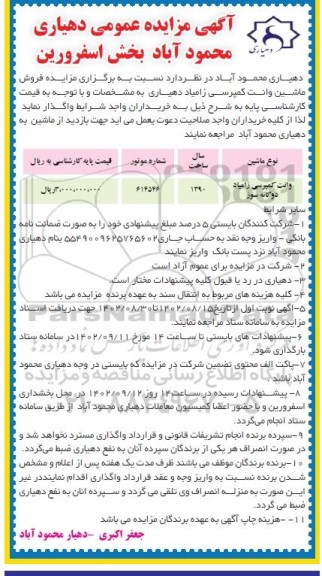 آگهی مزایده عمومی دهیاری
محمود آباد بخش اسفرورین
دهیاری
دهیاری محمود آباد در نظردارد نسبت به برگزاری مزایده فروش
ماشین وانت کمپرسی زامیاد دهیاری به مشخصات و با توجه به قیمت
کارشناسی پایه به شرح ذیل به خریداران واجد شرایط واگذار نماید
لذا از کلیه خریداران واجد صلاحیت دعوت بعمل می اید جهت بازدید از ماشین به
دهیاری محمود آباد مراجعه نمایند
نوع ماشین سال ساخت شماره موتور قیمت پایه کارشناسی به ریال
وانت کمپرسی زامیاد دوگانه سوز ۱۳۹۰ ۶۱۴۵۴۶ ۳،۰۰۰،۰۰۰،۰۰۰ریال
سایر شرایط
۱-شرکت کنندگان بایستی ۵ درصد مبلغ پیشنهادی خود را به صورت ضمانت نامه
بانکی - واریز وجه نقد به حساب جاری۵۵۴۹۰۰۹۶۲۵۷۶۵۶۰۲ بنام دهیاری
محمود آباد نزد پست بانک واریز نمایند
۲- شرکت در مزایده برای عموم آزاد است
۳- دهیاری در رد یا قبول کلیه پیشنهادات مختار است.
۴- کلیه هزینه های مربوط به انتقال سند به عهده برنده مزایده می باشد
۵-آگهی نوبت اول ازتاریخ۱۴۰۲/۰۸/۱۵تا۱۴۰۲/۰۸/۳۰ جهت دریافت اسناد
مزایده به سامانه ستاد مراجعه نمایند.
۶-پیشنهادات های بایستی تا ساعت ۱۴ مورخ ۱۴۰۲/۰۹/۱۱در سامانه ستاد
بارگذاری شود.
۷-پاکت الف محتوی تضمین شرکت در مزایده که بایستی در وجه دهیاری محمود
آباد باشد
۸- پیشنهادات رسیده در ساعت۱۴ روز ۱۴۰۲/۰۹/۱۲ در محل بخشداری
اسفرورین و با حضور اعضا کمیسیون معاملات دهیاری محمود آباد از طریق سامانه
ستاد انجام می‌گردد.
۹-سپرده برنده انجام تشریفات قانونی و قرارداد واگذاری مسترد نخواهد شد و
در صورت انصراف هر یکی از برندگان سپرده آنان به نفع دهیاری ضبط می‌گردد.
۱۰-برنده برندگان موظف می باشند ظرف مدت یک هفته پس از اعلام و مشخص
شدن برنده نسبت به واریز وجه و عقد قرارداد واگذاری اقدام نماینددر غیر
این صورت به منزله انصراف وی تلقی می گردد و سپرده انان به نفع دهیاری
ضبط می گردد.
۱۱- -هزینه چاپ آگهی به عهده برندگان مزایده می باشد
جعفر اکبری -دهیار محمود آباد